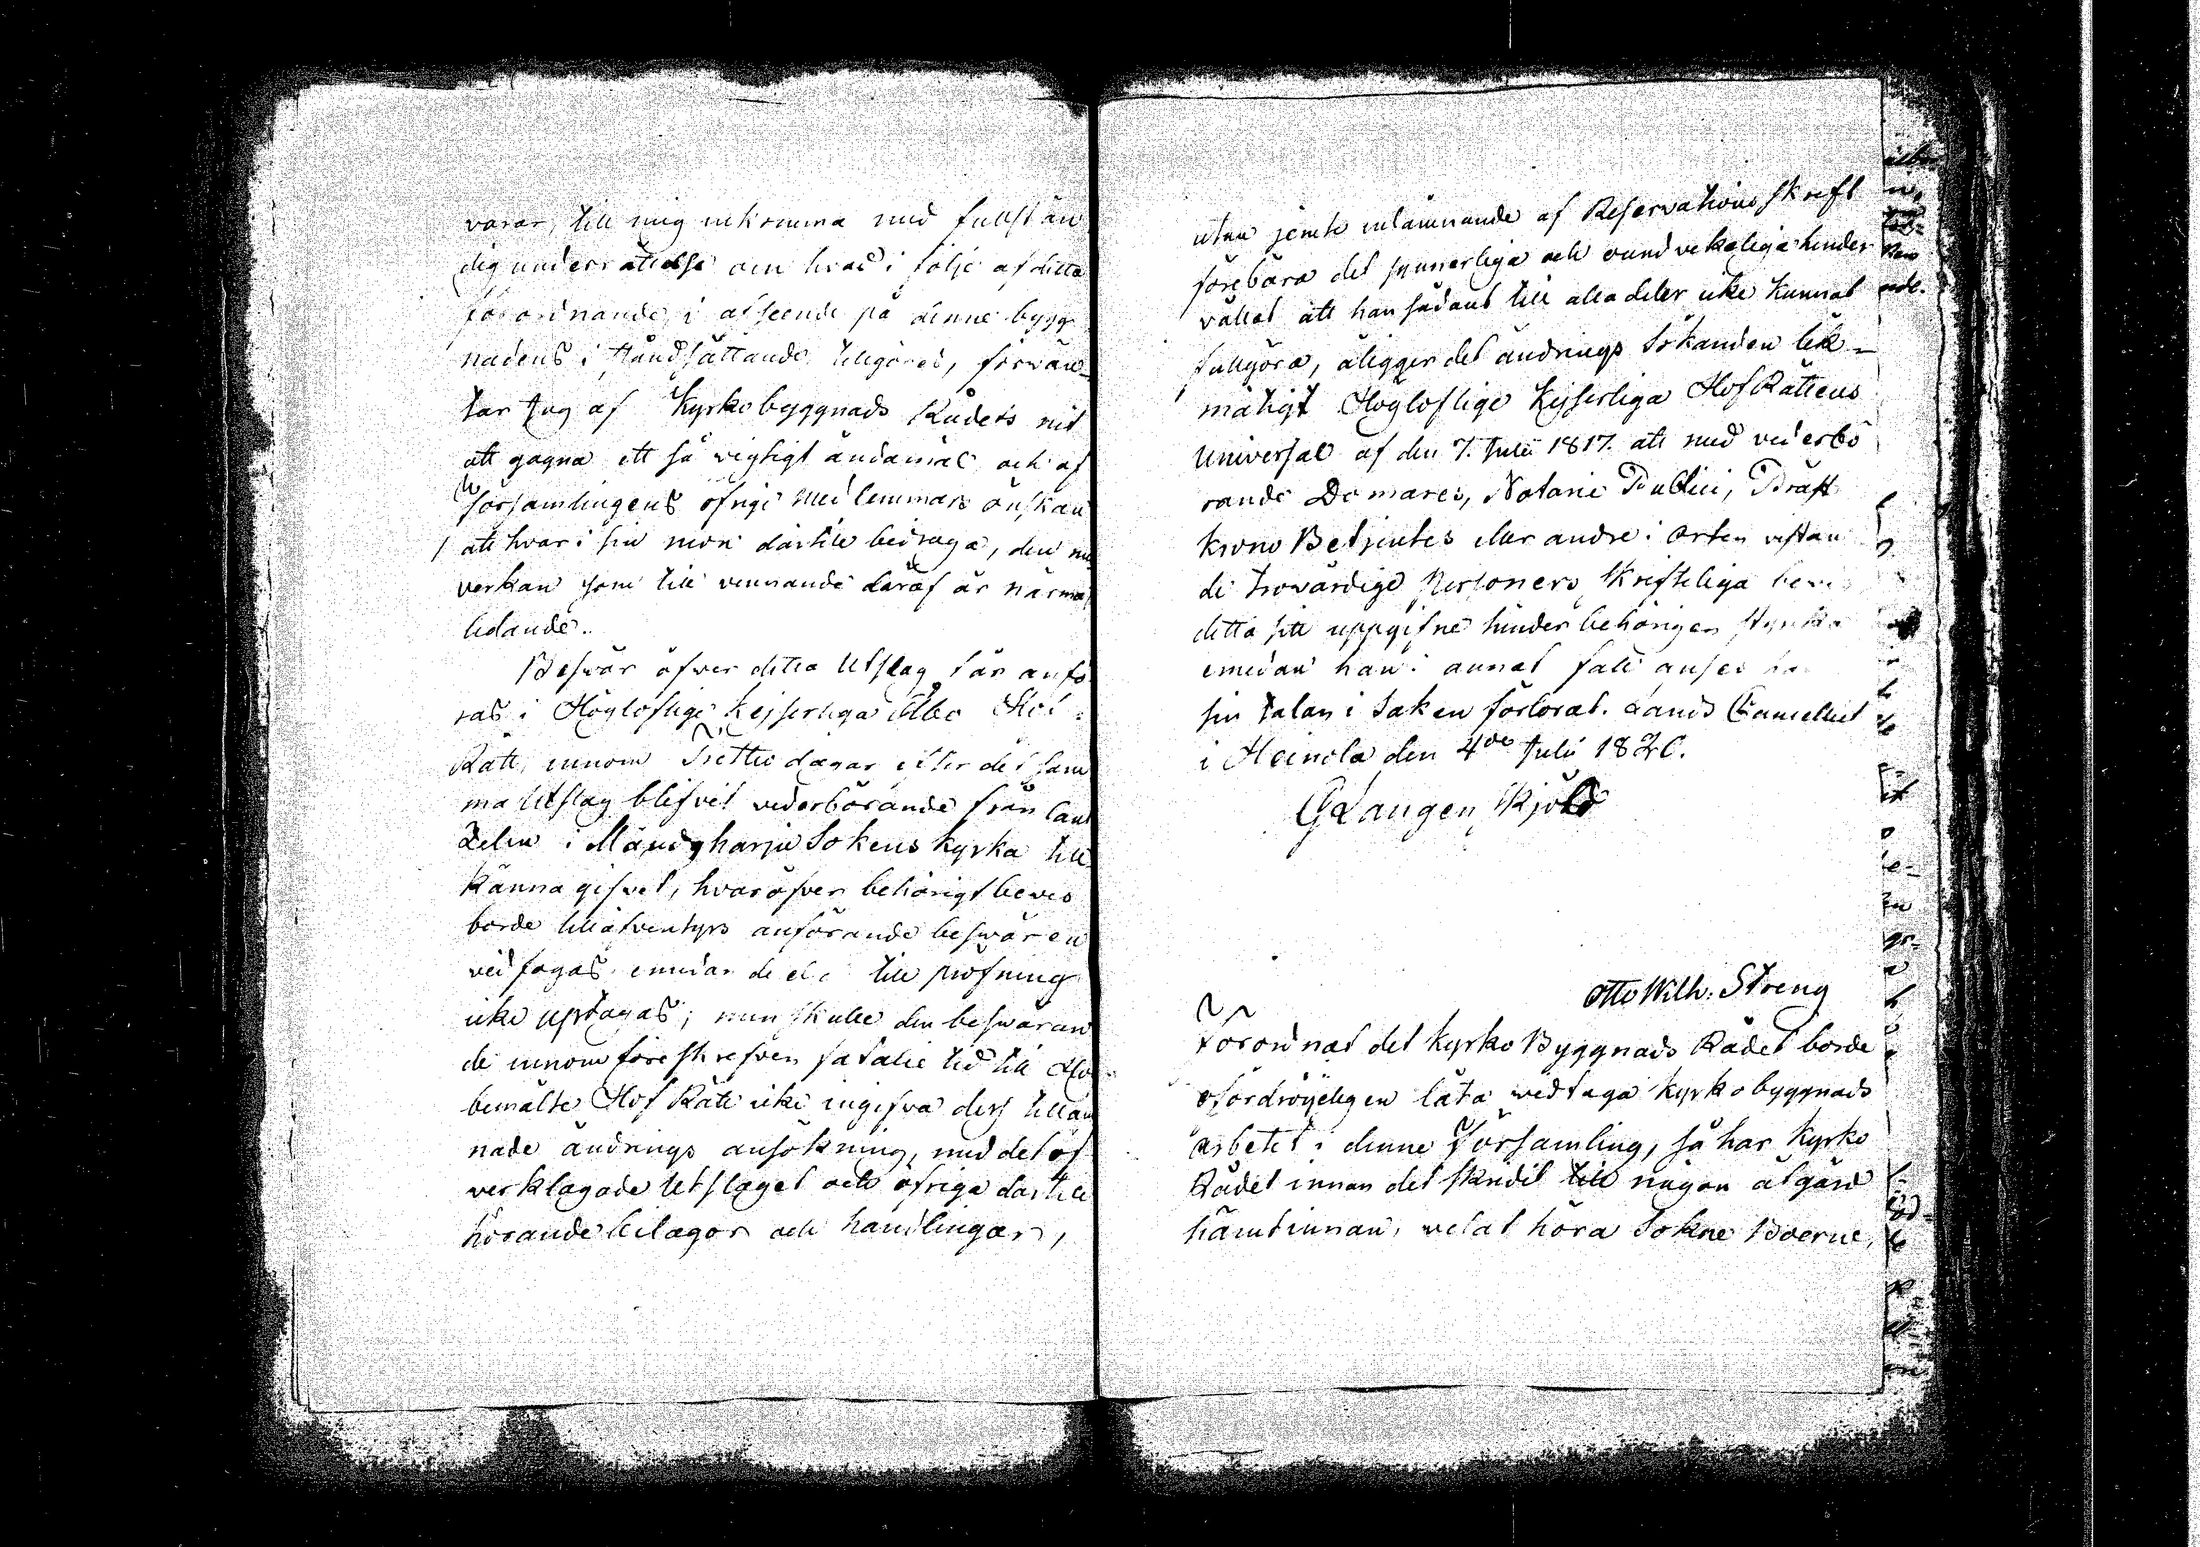 varar, till mig inkomma med fullstän
dig underrättelse om hvad i följe af detta
förordnande, i afseende på denne bygg
nadens i ståndsättande tillgöres, förvän-
tar Jag af Kyrkobyggnads Rådets nit
att gagna ett så vigtigt ändamål och af
församlingens öfrige medlemmars önskan
att hvar i sin mon dertill bidraga, den med
verkan som till vinnande deraf är närma
ledande.
Besvär öfver detta Utslag får anfö
ras i Högloflige Kejserliga Åbo Hof
Rätt, innom Trettio dagar efter det sam
ma Utslag blifvit vederbörande från Cant
zelen i Mändyharju Sokens Kyrka till
känna gifvet, hvaröfver behörigt bevis
borde till äfventyrs anförande besvären
vidfogas emedan de el till pröfning
icke uptagas; men skulle den besväran
de innom föreskrefven fatalie tid till Ho
bemälte Hof Rätt icke ingifva dess tillän
nade ändrings ansökning, med det öf
verklagade Utslaget och öfriga dertill
hörande bilagor och handlingar,
utan jemte inlämnande af Reservations skrift
förebära det synnerliga och oundvekeliga hinder
vållat att han sådant till alla delar icke kunnat
fullgöra, åligger det ändrings Sökanden lik-
mätigt Högloflige Kejserliga HofRättens
Universal af den 7. Julii 1817. att med vederbö
rande Domares, Notarie Publici, Präst
krono Betjentes eller andre i orten vistan
de trovärdige Personers skrifteliga bevi
detta sitt uppgifne hinder behörigen styrka
emedan han i annat fall anses ha
sin talan i Saken förlorat. Lands Cancelliet
i Heinola den 4de Julii 1820.
G Langenskjöld
Otto Wilh: Streng
Förordnat det Kyrko Byggnads Rådet borde
ofördröyeligen låta vedtaga Kyrkobyggnads
arbetet i denne Församling, så har Kyrko
Rådet innan det skridit till någon åtgärd
härutinnan, velat höra Sokne Boerne,